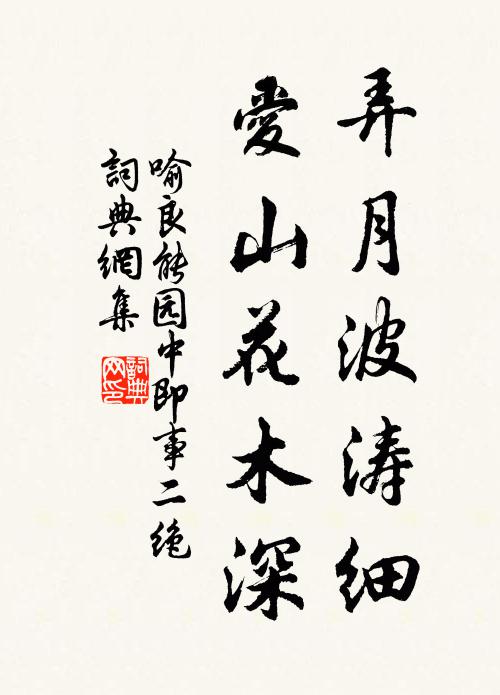 弄月波涛细
愛山花木深
喻良能园中即事二绝
詞典網集
詞典網印